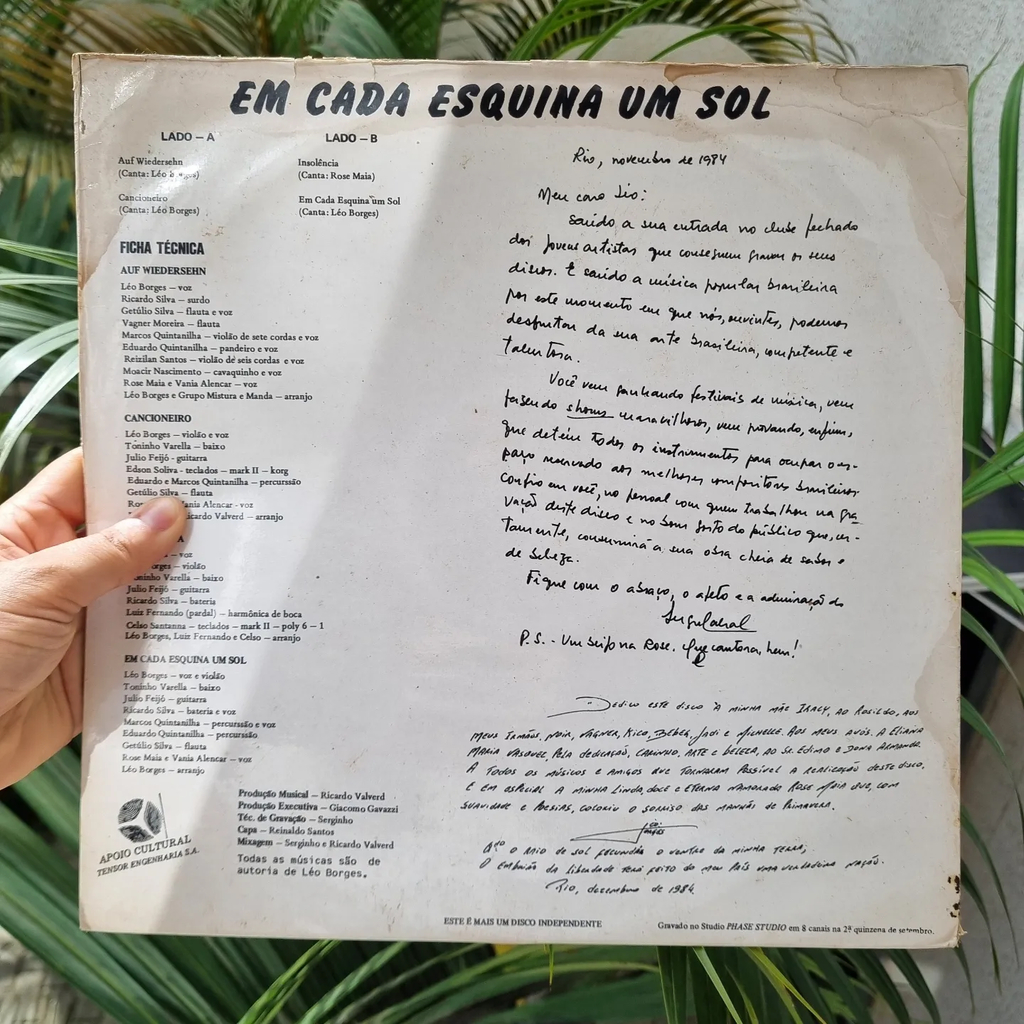 EM CADA ESQUINA UM SOL
LADO – A
Auf Wiedersehn
(Canta: Léo Borges)
Cancioneiro
(Canta: Léo Borges)
LADO – B
Insolência
(Canta: Rose Maia)
Em Cada Esquina um Sol
(Canta: Léo Borges)
FICHA TÉCNICA
AUF WIEDERSEHN
Léo Borges – voz
Ricardo Silva – surdo
Getúlio Silva – flauta e voz
Vagner Moreira – flauta
Marcos Quintanilha – violão de sete cordas e voz
Eduardo Quintanilha – pandeiro e voz
Reizilan Santos – violão de seis cordas e voz
Moacir Nascimento – cavaquinho e voz
Rose Maia e Vania Alencar – voz
Léo Borges e Grupo Mistura e Manda – arranjo
CANCIONEIRO
Léo Borges – violão e voz
Toninho Varella – baixo
Julio Feijó - guitarra
Edson Soliva - teclados – mark II – korg
Eduardo e Marcos Quintanilha – percurssão
Getúlio Silva – flauta
Vania Alencar - voz
Ricardo Valverd – arranjo
– voz
Borges – violão
Toninho Varella – baixo
Julio Feijó – guitarra
Ricardo Silva – bateria
Luiz Fernando (pardal) – harmônica de boca
Celso Santanna – teclados – mark II – poly 6 – 1
Léo Borges, Luiz Fernando e Celso – arranjo
EM CADA ESQUINA UM SOL
Léo Borges – voz e violão
Toninho Varella – baixo
Julio Feijó – guitarra
Ricardo Silva – bateria e voz
Marcos Quintanilha – percurssão e voz
Eduardo Quintanilha – percurssão
Getúlio Silva – flauta
Rose Maia e Vania Alencar – voz
Léo Borges – arranjo
APOIO CULTURAL
TENSOR ENGENHARIA S.A.
Produção Musical – Ricardo Valverd
Produção Executiva – Giacomo Gavazzi
Téc. de Gravação – Serginho
Capa – Reinaldo Santos
Mixagem – Serginho e Ricardo Valverd
Todas as músicas são de
autoria de Léo Borges.
Rio, novembro de 1984
Meu caro Léo:
Saúdo a sua entrada no clube fechado
dos jovens artistas que conseguem gravar os seus
discos. E saúdo a música popular brasileira
por este momento em que nós, ouvintes, podemos
desfrutar da sua arte brasileira, competente e
talentosa.
Você vem ganhando festivais de música, vem
fazendo shows maravilhosos, vem provando, enfim,
que detém todos os instrumentos para ocupar o es-
paço reservado aos melhores compositores brasileiros.
Confio em você, no pessoal com quem trabalhou na gra-
vação deste disco e no bom gosto do público que, cer-
tamente, consumirá a sua obra cheia de sabor e
de beleza.
Fique com o abraço, o afeto e a admiração do
Sergio Cabral
P.S. - Um beijo na Rose. Que cantora, hein!
Dedico este disco à minha mãe Iracy, ao Rosildo, aos
meus irmãos, Nair, Vagner, Kico, Beber, Jodi e Michelle. Aos meus avós. A Eliana
Maria Vasquel pela dedicação, carinho, arte e beleza, ao Sr. Edimo e Dona Armanda.
A todos os músicos e amigos que tornaram possível a realização deste disco.
E em especial a minha linda, doce e eterna namorada Rose Maia que, com
suavidade e poesias, coloriu o sorriso das manhãs de primavera.
Léo Borges
o raio de sol fecundar o ventre da minha terra,
O embrião da liberdade terá feito do meu país uma verdadeira nação.
Rio, dezembro de 1984
ESTE É MAIS UM DISCO INDEPENDENTE
Gravado no Studio PHASE STUDIO em 8 canais na 2ª quinzena de setembro.